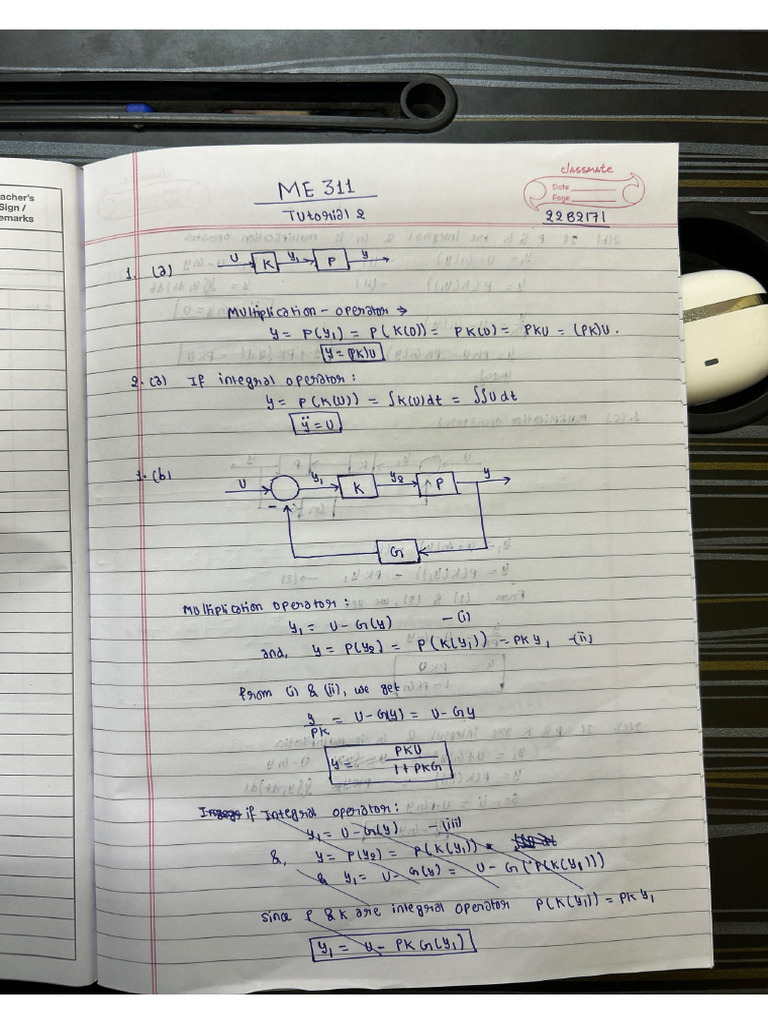 acher's
Sign /
emarks
classmate
Date
Page
ME 311
Tutorial 2
22B2171
1. (a) U K y₁ P y
Multiplication - operator →
y = P(y₁) = P(K(U)) = PK(U) = PKU = (PK)U.
y = (PK)U
2. (a) If integral operator:
y = P(K(U)) = ∫K(U)dt = ∫∫Udt
ÿ = U
1. (b)
U y₁ K y₂ P y
-
G
Multiplication operator:
y₁ = U - G(y) -(i)
and, y = P(y₂) = P(K(y₁)) = PKy₁ -(ii)
from (i) & (ii), we get
y/PK = U - G(y) = U - Gy
y = PKU/(1 + PKG)
if Integral operator:
y₁ = U - G(y) -(iii)
&, y = P(y₂) = P(K(y₁))
& y₁ = U - G(y) = U - G(P(K(y₁)))
since P & K are integral operator P(K(y₁)) = PKy₁
y₁ = U - PKG(y₁)